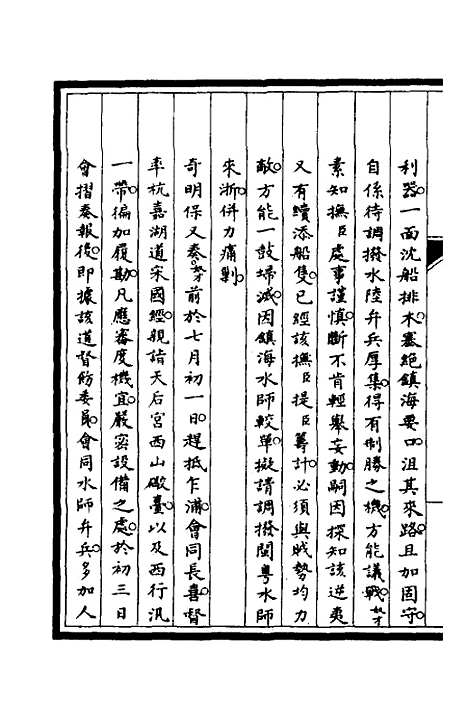 利器一面沈船排木塞絕鎮海要口沮其來路且加固守
自係待調撥水陸弁兵厚集得有制勝之機方能議戰奴才
素知撫臣處事謹慎斷不肯輕舉妄動嗣因探知該逆夷
又有續添船隻已經該撫臣提臣籌計必須與賊勢均力
敵方能一鼓埽滅因鎮海水師較單擬請調撥閩粵水師
來浙併力痛剿
奇明保又奏奴才前於七月初一日趕抵乍浦會同長喜督
率杭嘉湖道宋國經親詣天后宮西山礮臺以及西行汛
一帶徧加履勘凡應審度機宜嚴密設備之處於初三日
會摺奏報後即據該道督飭委員會同水師弁兵多加人